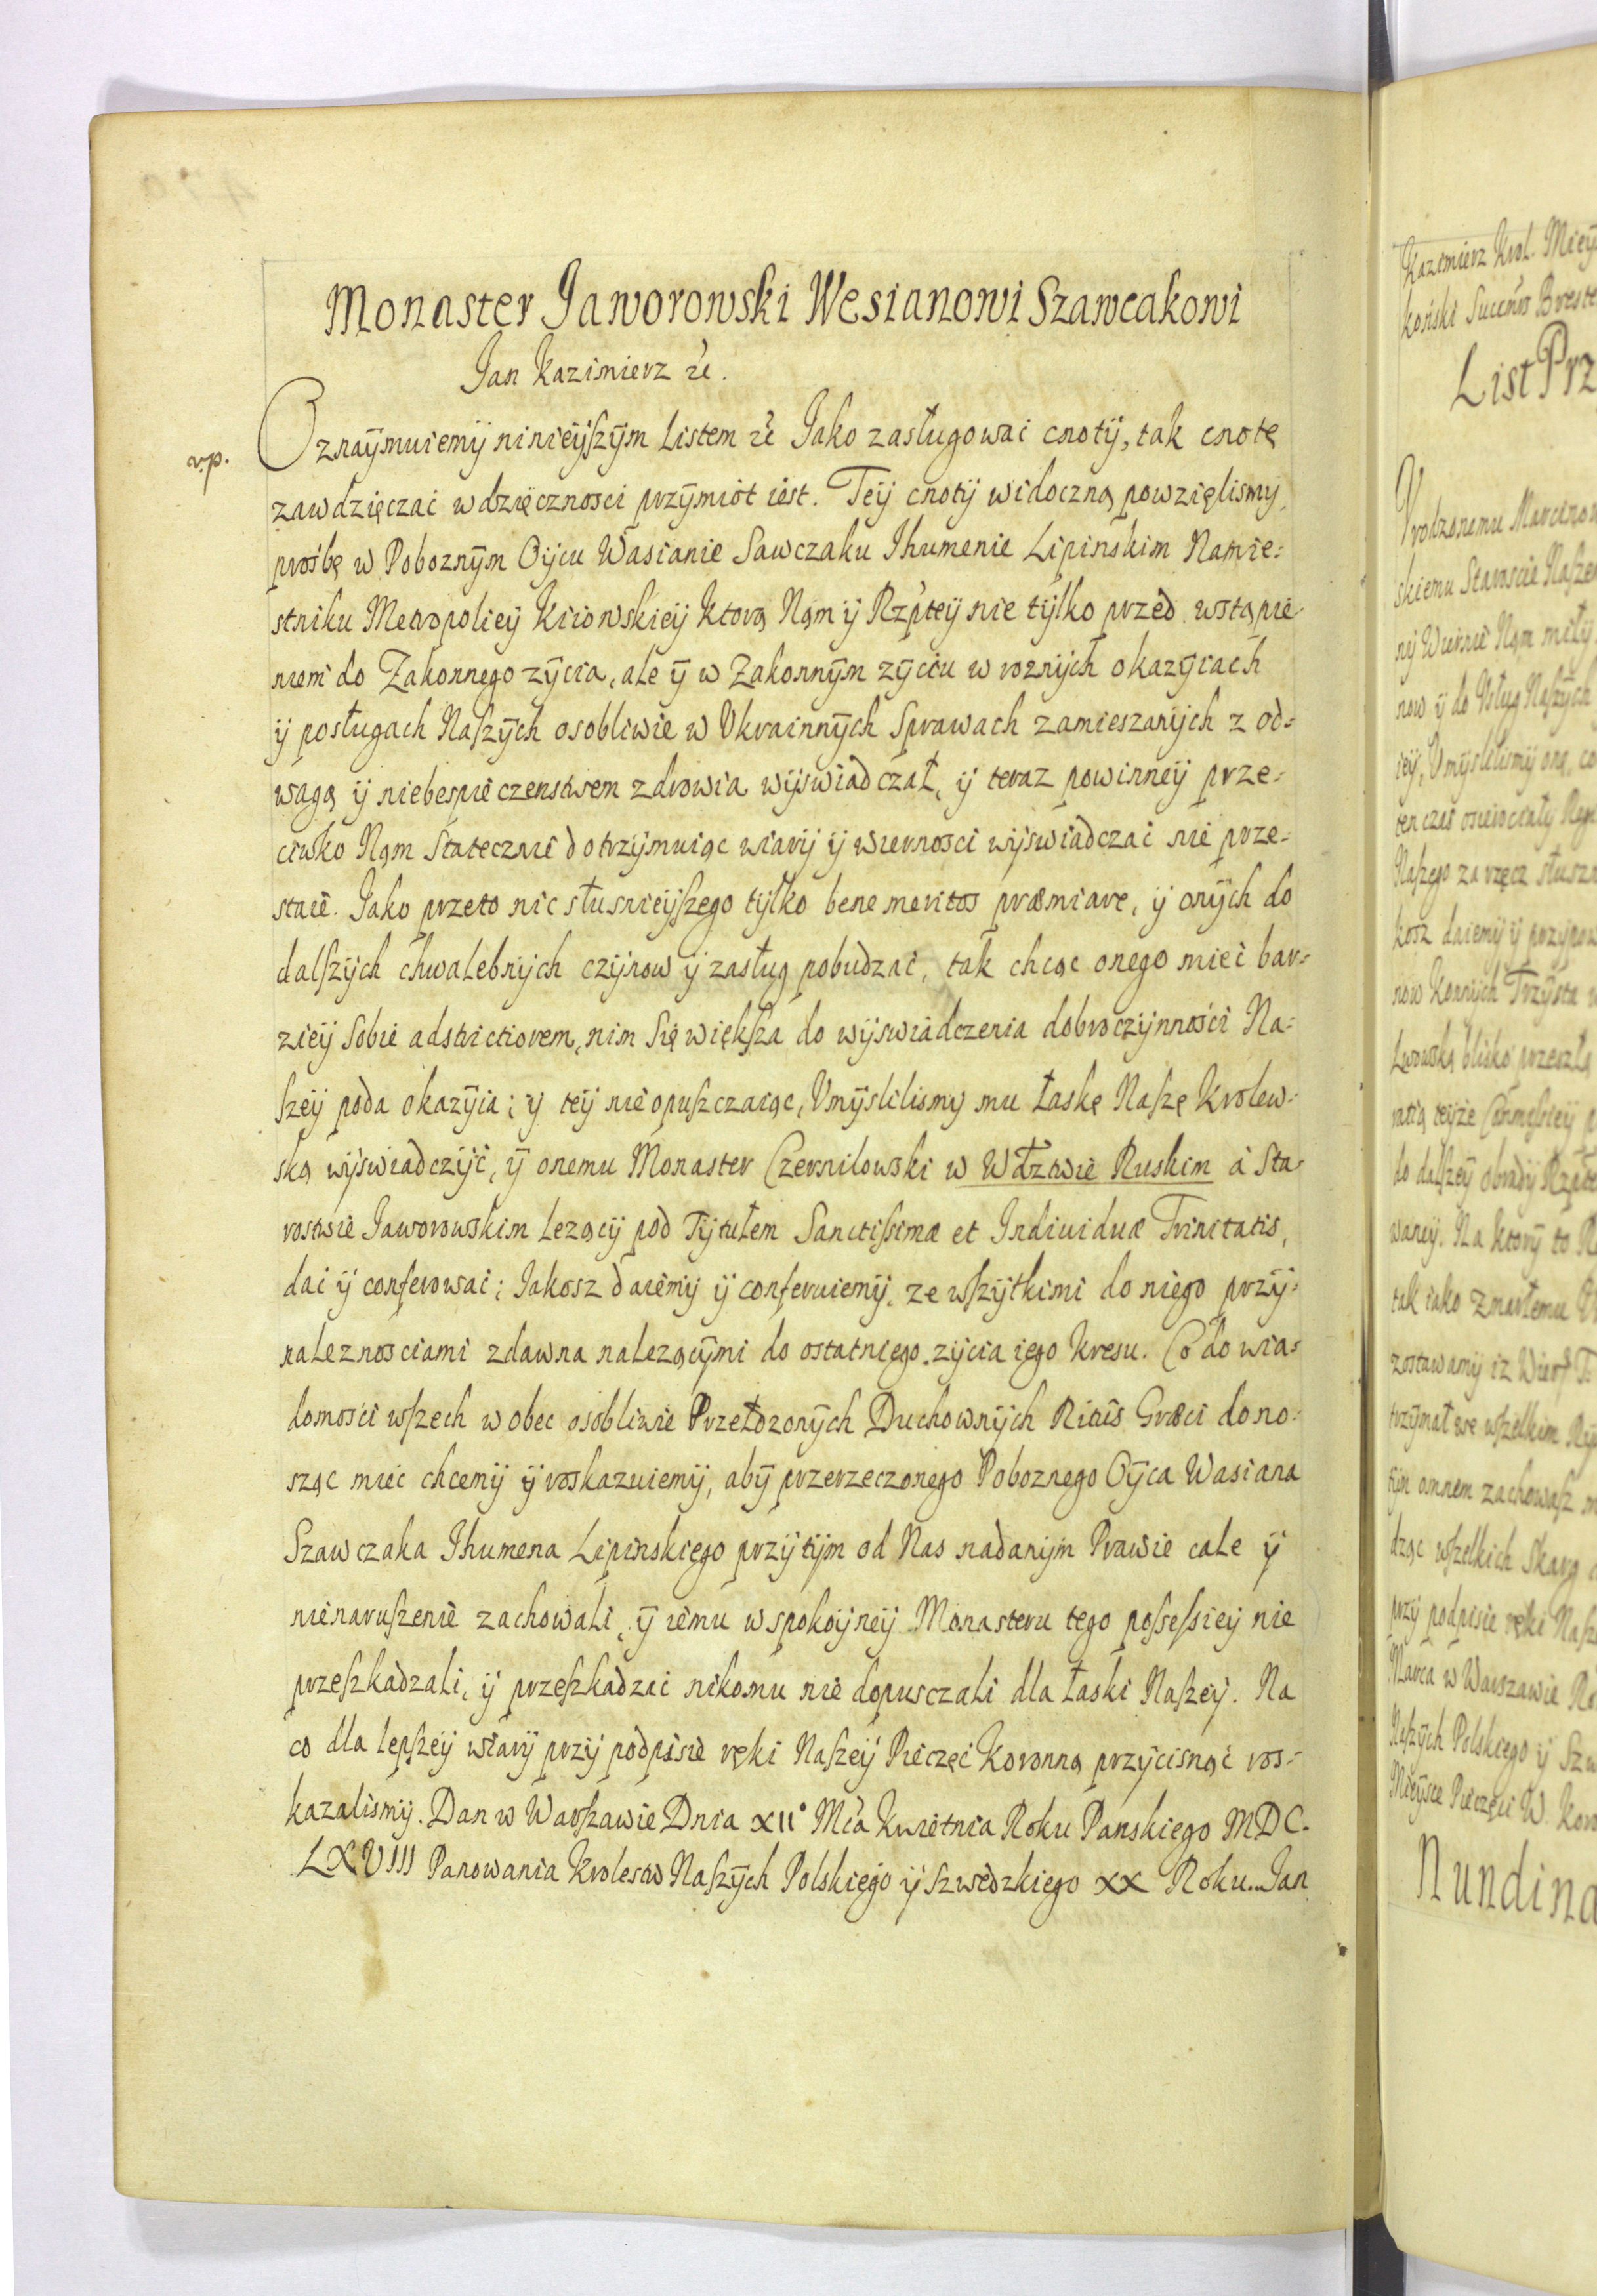 Monaster Jaworowski Wesianowi Szawcakowi
Jan Kazimierz &c.
v.p.
Oznaÿmuiemÿ ninieÿszÿm Listem &c Jako zasługowac cnotÿ, tak cnotę
zawdzięczac wdzięcznosci przÿmiot iest. Teÿ cnotÿ widoczną powzięlismy
prośbę w Poboznÿm Oÿcu Wasianie Sawczaku Jhumenie Lipinskim Namie=
stniku Metropolieÿ Kiiowskieÿ ktorą Nąm ÿ Rzpteÿ nie tÿlko przed wstąpie
niem do Zakonnego zÿcia, ale ÿ w Zakonnÿm zÿciu w roznÿch okazÿiach
ÿ posługach Naszÿch osobliwie w Vkrainnÿch Sprawach zamieszanÿch z od=
wagą ÿ niebespieczenstwem zdrowia wÿswiadczał, ÿ teraz powinneÿ prze=
ciwko Nąm Statecznie dotrzÿmuiąc wiarÿ ÿ wiernosci wÿswiadczac nie prze=
staie. Jako przeto nic słusnieÿszego tÿlko bene meritos præmiare, ÿ onÿch do
dalszÿch chwalebnÿch czÿnow ÿ zasług pobudzac, tak chcąc onego miec bar=
zieÿ sobie adstrictiorem, nim Się większa do wÿswiadczenia dobroczÿnności Na=
szeÿ poda okazÿia; ÿ teÿ nie opuszczaiąc, Vmÿslilismy mu łaskę Naszę Krolew=
ską wÿswiadczÿć, ÿ onemu Monaster Czernilowski w Wdztwie Ruskim à Sta=
rostwie Jaworowskim lezącÿ pod Tÿtułem Sanctissimæ et Individuæ Trinitatis,
dac ÿ conferowac; Jakosz daiemÿ ÿ conferuiemÿ, ze wszÿtkimi do niego przÿ=
naleznosciami zdawna nalezącÿmi do ostatniego zÿcia iego kresu. Co do wia=
domości wszech w obec osobliwie Przełozonÿch Duchownÿch Ritûs Græci dono=
sząc miec chcemÿ ÿ roskazuiemÿ, abÿ przerzeczonego Poboznego Oÿca Wasiana
Szawczaka Jhumena Lipinskiego przÿ tÿm od Nas nadanÿm Prawie cale ÿ
nienaruszenie zachowali, ÿ iemu w spokoÿneÿ Monasteru tego possessieÿ nie
przeszkadzali, ÿ przeszkadzac nikomu nie dopusczali dla łaski Naszeÿ. Na
co dla lepszeÿ wiarÿ przÿ podpisie ręki Naszeÿ Pieczęć Koronną przÿcisnąć ros=
kazalismÿ. Dan w Warszawie Dnia XII° Mca Kwietnia Roku Panskiego MDC.
LXVIII Panowania Krolestw Naszÿch Polskiego ÿ Szwedzkiego XX Roku. Jan
Kazimierz Krol. Mieÿ
List Prz
Vrodzonemu Marcino
skiemu Staroscie Nasze
nÿ Wiernie Nąm miłÿ
now ÿ do Vsług Naszÿch
Naszego za rzecz słuszn
kosz daiemÿ ÿ przÿpow
Lwowską blisko przeszłą
tak iako zmarłemu
dząc wszelkich Skarg
przÿ podpisie ręki Nasz
Marca w Warszawie Ro
Naszÿch Polskiego ÿ Szw
Mieÿsce Pieczęci W. Koro
Nundina